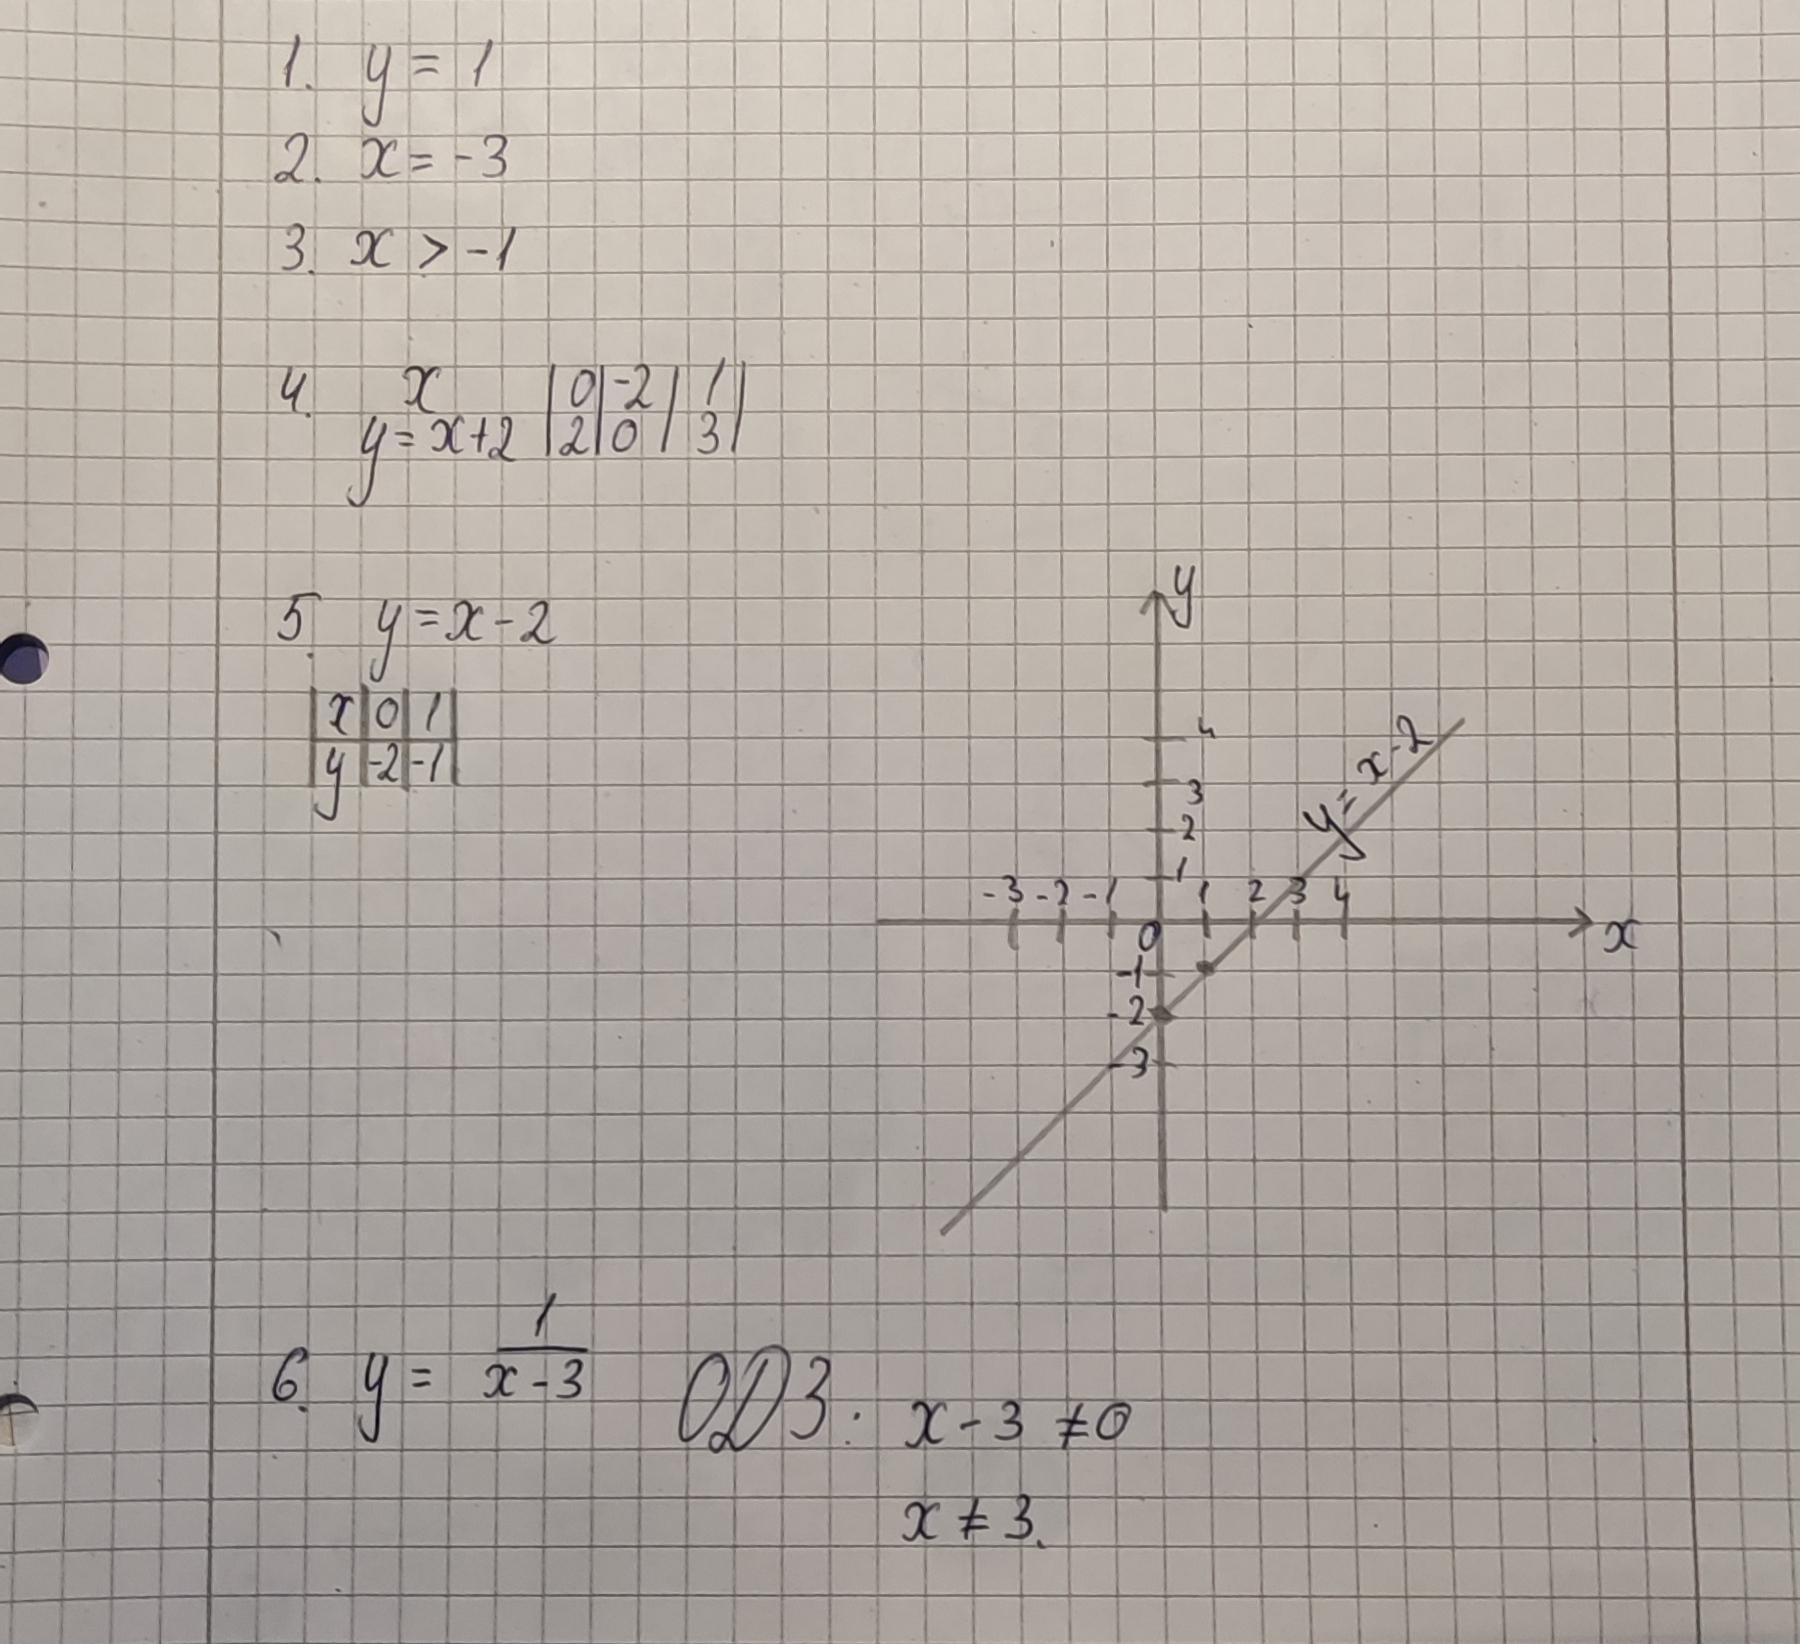 1. y = 1
2. x = -3
3. x > -1
4. x | 0 | -2 | 1 |
y = x+2 | 2 | 0 | 3 |
5. y = x - 2
| x | 0 | 1 |
| y | -2 | -1 |
y
4
3
2
1
y = x - 2
-3 -2 -1 1 2 3 4
0
x
-1
-2
-3
6. y = 1/(x - 3) ОДЗ: x - 3 ≠ 0
x ≠ 3.